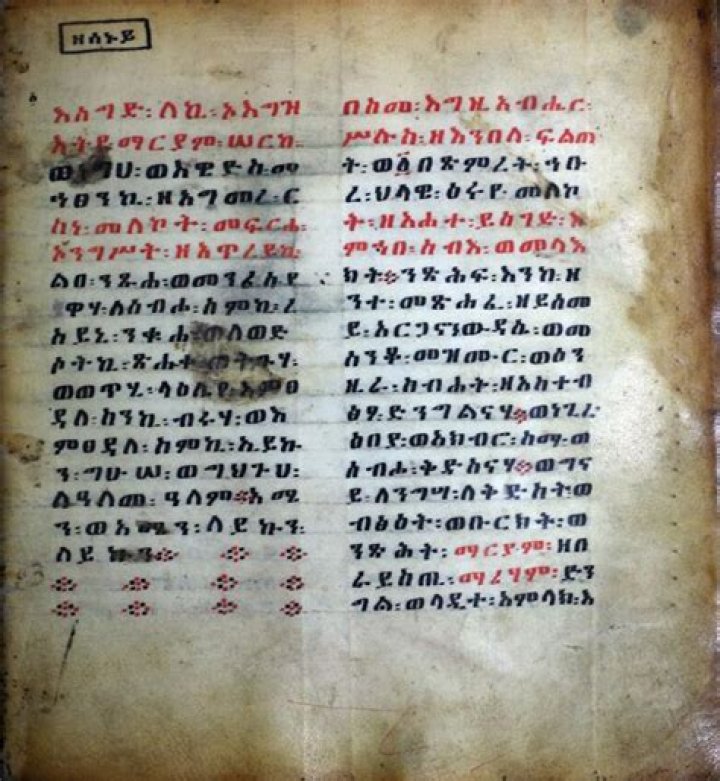 ዘሰኑይ
እሰግድ፡ለኪ፡ኦእግዝ
እትየ፡ማርያም፡ሠርከ፡
ወነግህ፡ወእዊድየ፡ስመ
ስነ፡መለኮት፡መፍርሔ፡
ኦንግሥት፡ዘእጥረይኪ፡
ልዐ፡ንጹሐ፡ወመንፈሰየ
ዋሃ፡ለስብሐ፡ስምኪ፡ረ
ስይኒ፡ንቁሐ፡ወለወድ
ሶትኪ፡ጽሐተ
ወወጥሂ፡ላዕሌየ፡እምፀ
ዳለ፡ስንኪ፡ብሩሃ፡ወእ
ምፀዳለ፡ስምኪ፡ኢይኩ
ን፡ግሁሠ፡ወግህጉሀ፡
ለዓለመ፡ዓለም፨አሜ
ን፡ወአሜን፡ለይኩን፡
ለይኩን፨ ፨ ፨ ፨
፨ ፨ ፨ ፨
፨ ፨ ፨ ፨
በስመ፡እግዚአብሔር፡
ሥሉስ፡ዘእንበለ፡ፍልጠ
ት፡ወ፩በጽምረት፡ኅቡ
ረ፡ህላዌ፡ዕሩየ፡መለኮ
ት፡ዘአሐተ፡ይሰገድ፡እ
ምኀበ፡ሰብእ፡ወመላእ
ክት፨ንጽሕፍ፡እንከ፡ዘ
ንተ፡መጽሐፈ፡ዘይሰመ
ይ፡አርጋኖነ፡ውዳሴ፡ወመ
ሰንቆ፡መዝሙር፡ወዕን
ዚራ፡ስብሐት፡ዘአስተብ
ፅዖ፡ድንግልናሃ፨ወነጊረ
ዕበያ፡ወአክብሮ፡ስማ፡ወ
ሰብሖ፡ቅድስናሃ፨ወግና
ይ፡ለንግሣ፡ለቅድስት፡ወ
ብፅዕት፡ወቡርክት፡ወ
ንጽሕት፡ማርያም፡ዘበ
ራይስጢ፡ማሪሃም፡ድን
ግል፡ወላዲተ፡አምላክ፡እ